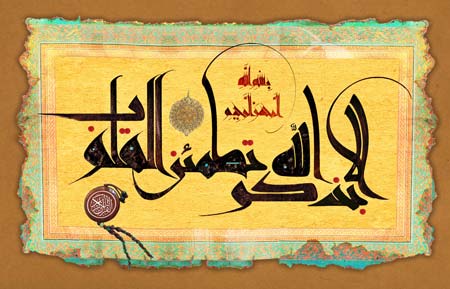 بسم الله
الرحمن الرحيم
الا بذكر الله تطمئن القلوب